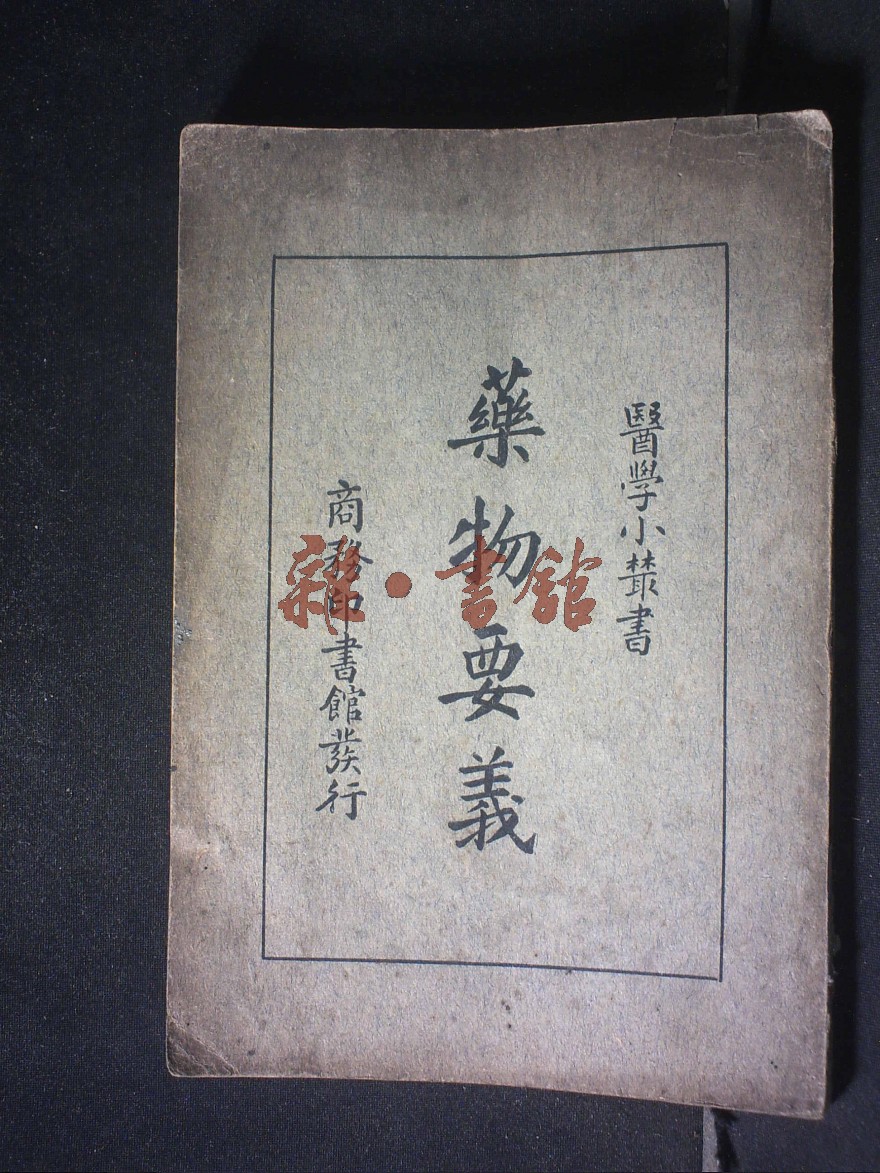 醫學小叢書
藥物要義
商務印書館發行
雜·書館